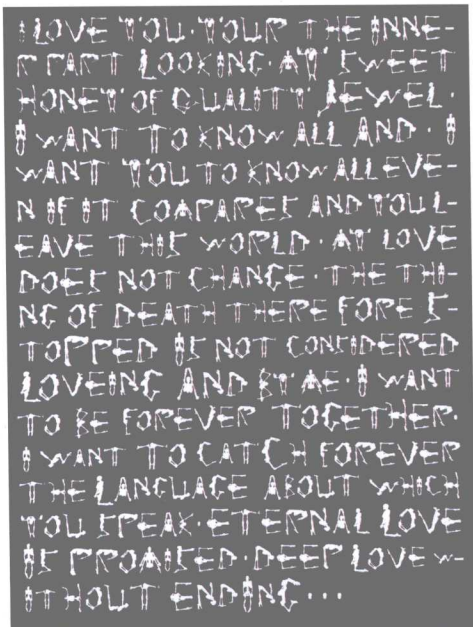 I LOVE YOU·YOUR THE INNE-
R PART LOOKING·MY SWEET
HONEY OF QUALITY JEWEL·
I WANT TO KNOW ALL AND·I
WANT YOU TO KNOW ALL EVE-
N IF IT COMPARES AND YOU L-
EAVE THIS WORLD·MY LOVE
DOES NOT CHANGE·THE THI-
NG OF DEATH THERE FORE S-
TOPPED IS NOT CONSIDERED
LOVEING AND BY ME·I WANT
TO BE FOREVER TOGETHER·
I WANT TO CATCH FOREVER
THE LANGUAGE ABOUT WHICH
YOU SPEAK·ETERNAL LOVE
IS PROMISED·DEEP LOVE W-
ITHOUT ENDING···